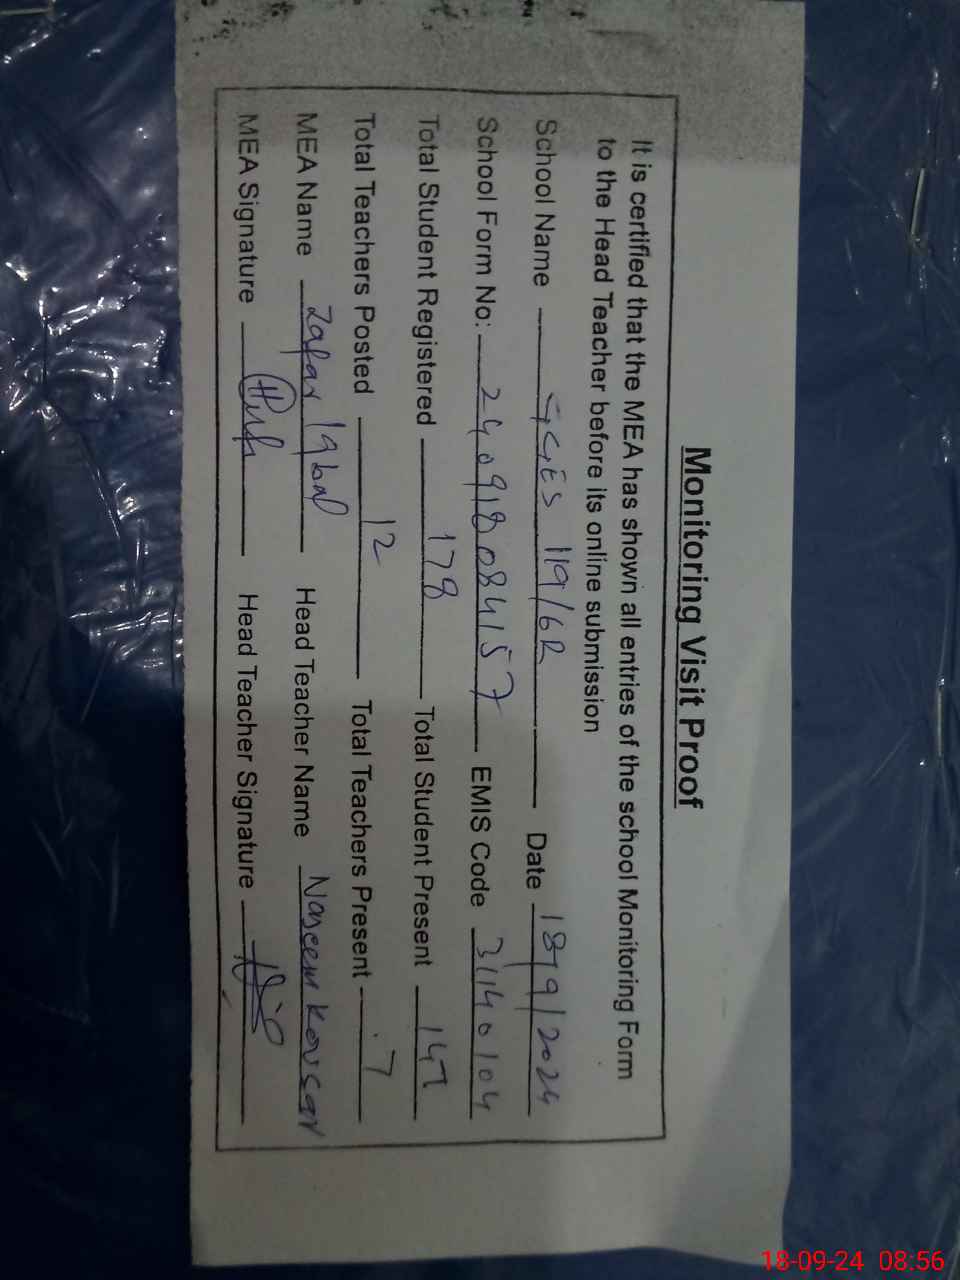 Monitoring Visit Proof
It is certified that the MEA has shown all entries of the school Monitoring Form
to the Head Teacher before its online submission
School Name GGES 119/6R Date 18/9/2024
School Form No: 240918084157 EMIS Code 31140104
Total Student Registered 178 Total Student Present 147
Total Teachers Posted 12 Total Teachers Present 7
MEA Name Zafar Iqbal Head Teacher Name Naseem Kousar
MEA Signature Head Teacher Signature
18-09-24 08:56